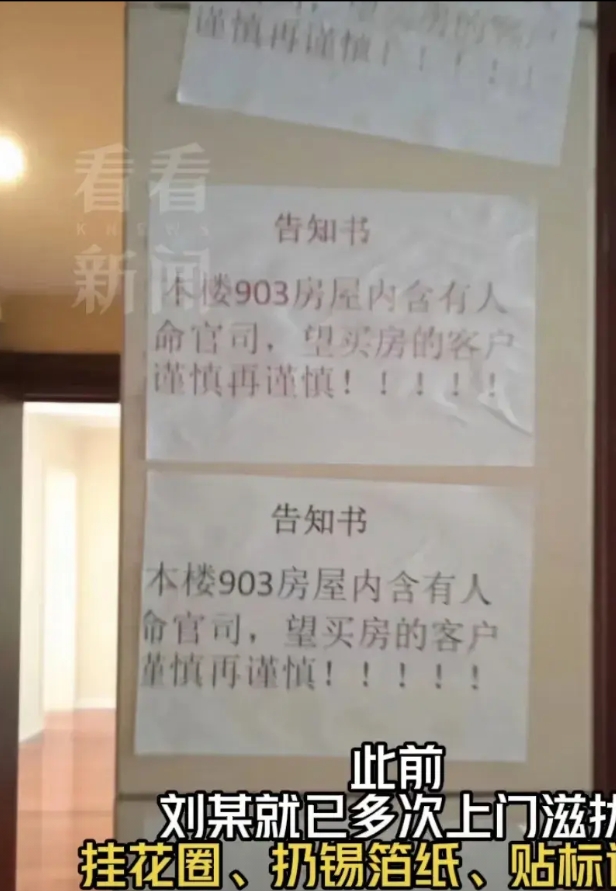 谨慎再谨慎！！！！！
看看
KNEWS
新闻
告知书
本楼903房屋内含有人
命官司，望买房的客户
谨慎再谨慎！！！！！
告知书
本楼903房屋内含有人
命官司，望买房的客户
谨慎再谨慎！！！！！
此前
刘某就已多次上门滋扰
挂花圈、扔锡箔纸、贴标